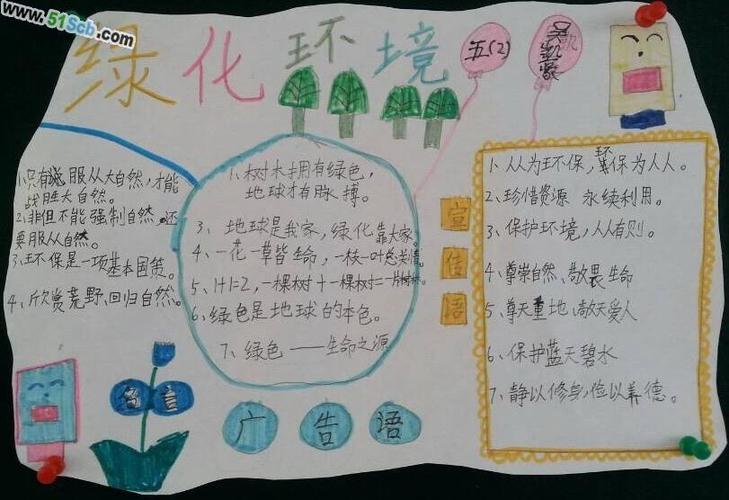 www.51Scb.com
绿化环境
五(2)
1、只有说服从大自然,才能
战胜大自然。
2、非但不能强制自然,还
要服从自然。
3、环保是一项基本国策。
4、欣赏荒野、回归自然。
名言
1、树木拥有绿色,
地球才有脉搏。
3、地球是我家,绿化靠大家。
4、一花一草皆生命,一枝一叶总关情。
5、1+1=2,一棵树+一棵树=一片森林
6、绿色是地球的本色。
7、绿色——生命之源
广告语
宣传语
1、人人为环保,环保为人人。
2、珍惜资源 永续利用。
3、保护环境,人人有则。
4、尊崇自然、敬畏生命
5、尊天重地、敬天爱人
6、保护蓝天碧水
7、静以修身,俭以养德。